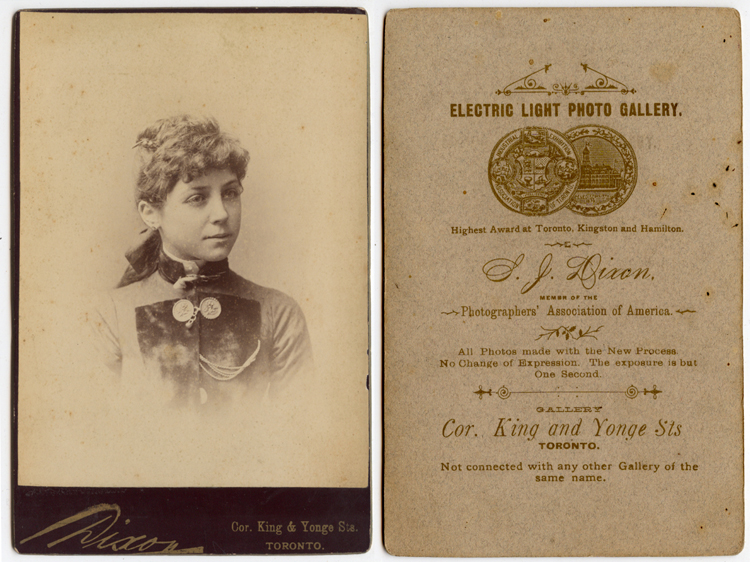 Dixon
Cor. King & Yonge Sts.
TORONTO.
ELECTRIC LIGHT PHOTO GALLERY.
INDUSTRIAL EXHIBITION
ASSOCIATION OF TORONTO
Highest Award at Toronto, Kingston and Hamilton.
S. J. Dixon,
MEMBR OF THE
Photographers' Association of America.
All Photos made with the New Process
No Change of Expression. The exposure is but
One Second.
GALLERY
Cor. King and Yonge Sts
TORONTO.
Not connected with any other Gallery of the
same name.